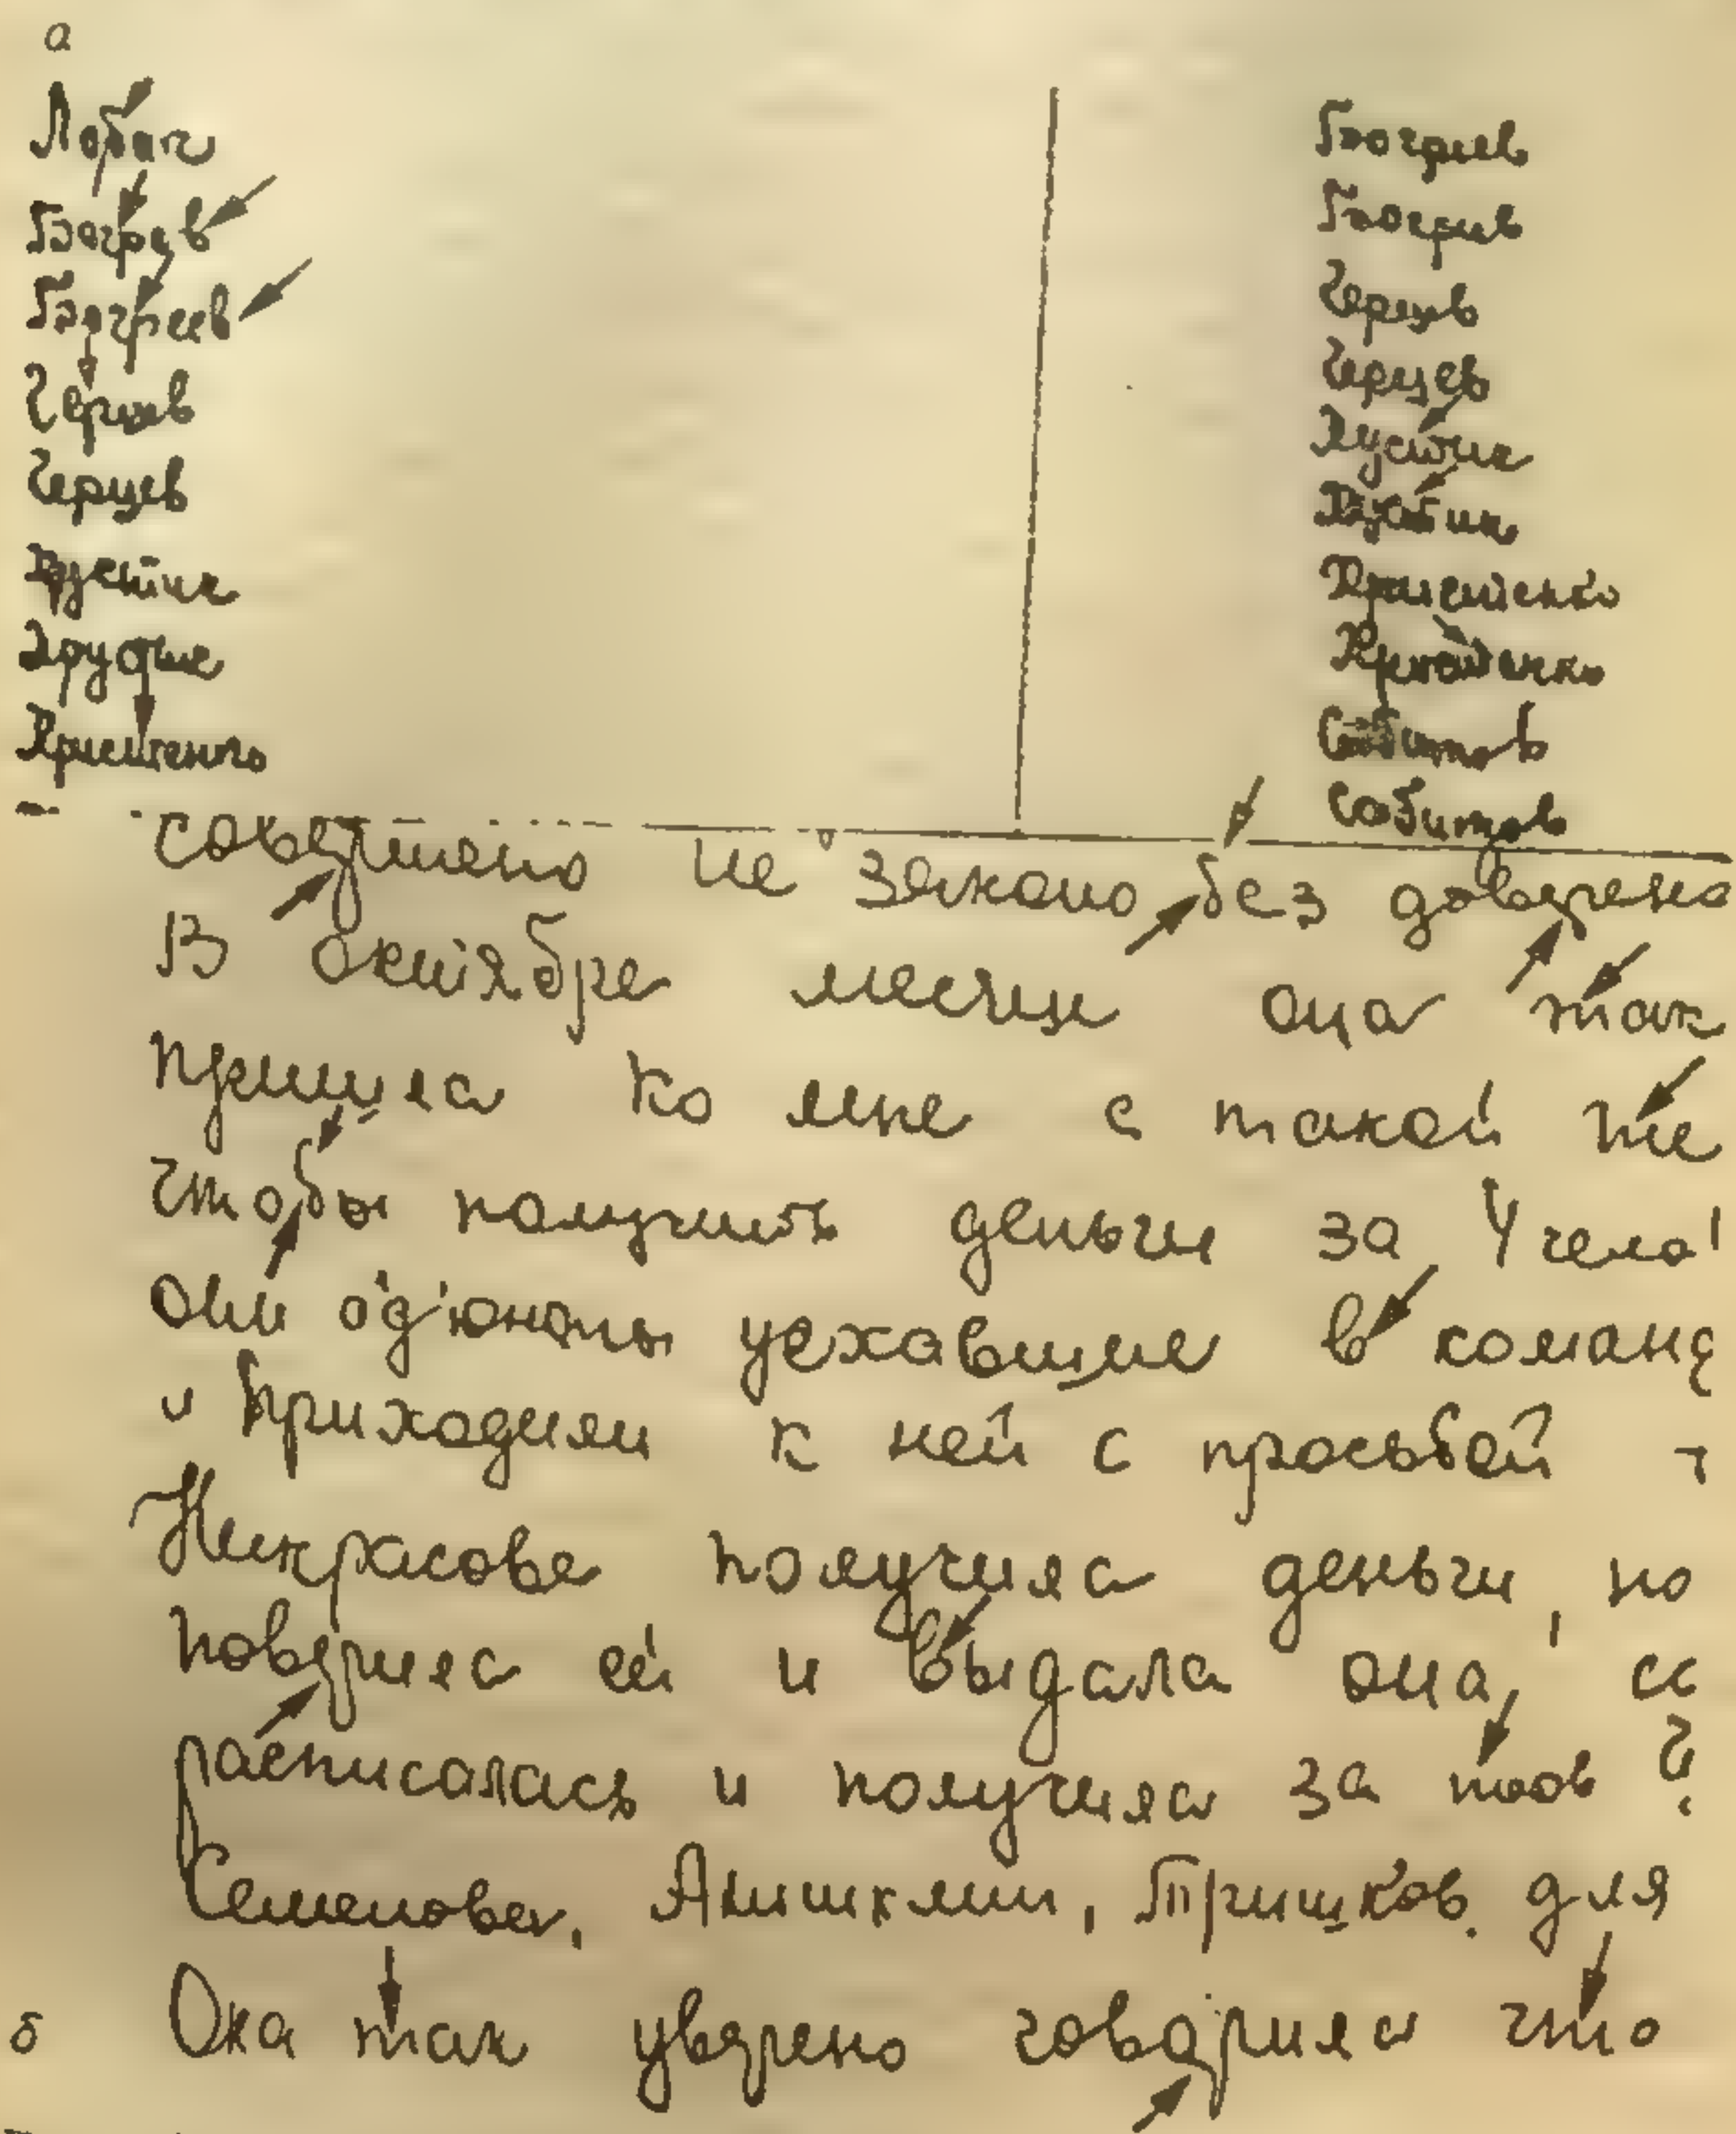 а
Лобач
Багрев
Багреев
Черцев
Черцев
Хрустик
Кристенко
Багриев
Багрив
Черцев
Черцев
Хустик
Кристенко
Собитов
Собитов
совершено не законо без доверено
В октябре месяце она так
пришла ко мне с такой же
чтобы получить деньги за 4 чело
они уехавшие в команд
и приходили к ней с просьбой т
Некрасове получила деньги, но
поверила ей и выдала она, сс
расписалась и получила за тов
Семенова, Гришков. для
б
Она так уверено говорила что